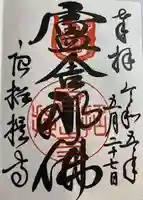 奉拝
令和五年
五月二十七日
盧舎那佛
唐招提寺